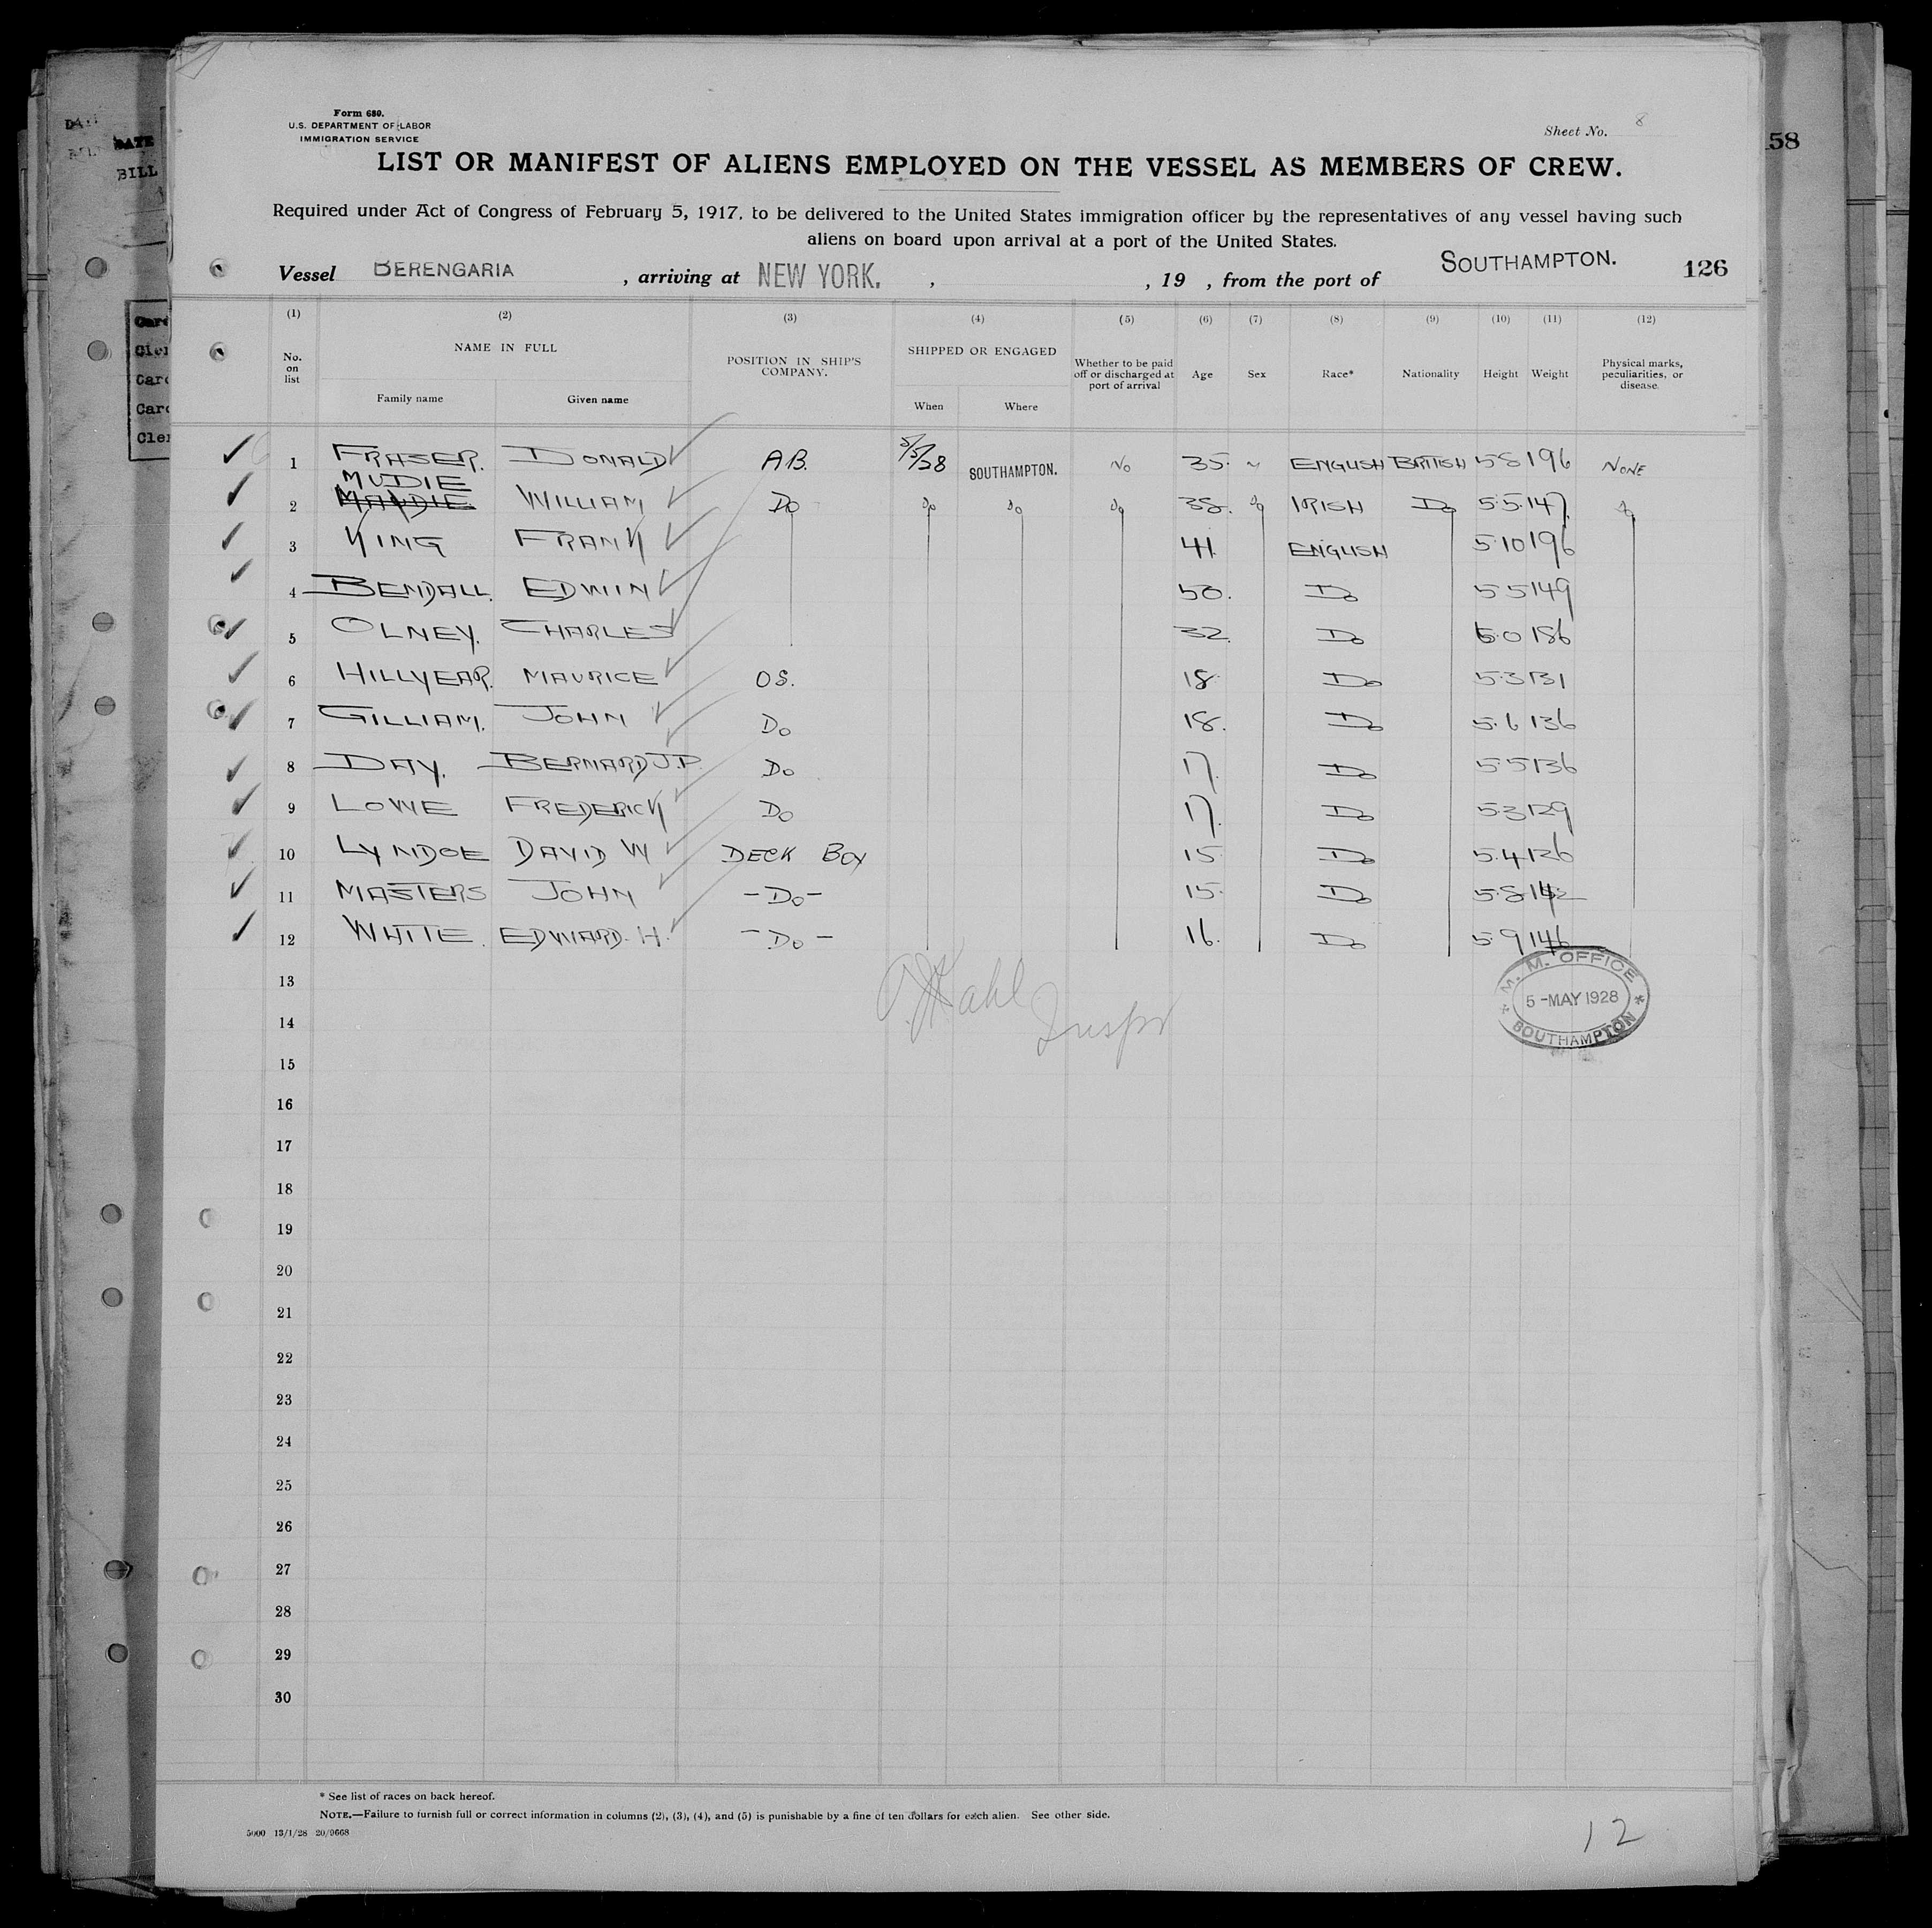 Form 680.
U.S. DEPARTMENT OF LABOR
IMMIGRATION SERVICE
Sheet No. 8
58
DATE
BILL
LIST OR MANIFEST OF ALIENS EMPLOYED ON THE VESSEL AS MEMBERS OF CREW.
Required under Act of Congress of February 5, 1917, to be delivered to the United States immigration officer by the representatives of any vessel having such
aliens on board upon arrival at a port of the United States.
Vessel BERENGARIA , arriving at NEW YORK. , , 19 , from the port of SOUTHAMPTON. 126
(1) (2) (3) (4) (5) (6) (7) (8) (9) (10) (11) (12)
No. on list NAME IN FULL Family name Given name POSITION IN SHIP'S COMPANY. SHIPPED OR ENGAGED When Where Whether to be paid off or discharged at port of arrival Age Sex Race* Nationality Height Weight Physical marks, peculiarities, or disease.
1 FRASER. DONALD A.B. 5/5/28 SOUTHAMPTON. No 35. ENGLISH BRITISH 5·8 196 NONE
MUDIE
2 MANDIE WILLIAM Do do do do 38. do IRISH Do 5·5 147 do
3 KING FRANK 41 ENGLISH 5·10 196
4 BENDALL. EDWIN 50. Do 5·5 149
5 OLNEY. CHARLES 32. Do 6·0 186
6 HILLYEAR. MAURICE O.S. 18 Do 5·3 131
7 GILLIAM. JOHN Do 18. Do 5·6 136
8 DAY. BERNARD J.P. Do 17. Do 5·5 136
9 LOWE FREDERICK Do 17. Do 5·3 129
10 LYNDOE DAVID W DECK BOY 15 Do 5·4 126
11 MASTERS JOHN -Do- 15. Do 5·8 142
12 WHITE. EDWARD. H. -Do- 16. Do 5·9 146
13
14
15
16
17
18
19
20
21
22
23
24
25
26
27
28
29
30
Kahl
Inspr
M. M. OFFICE
5 -MAY 1928
SOUTHAMPTON
* See list of races on back hereof.
NOTE.—Failure to furnish full or correct information in columns (2), (3), (4), and (5) is punishable by a fine of ten dollars for each alien. See other side.
5000 13/1/28 20/9668
12